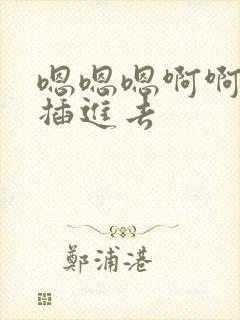 嗯嗯嗯啊啊
插進去
鄭浦港